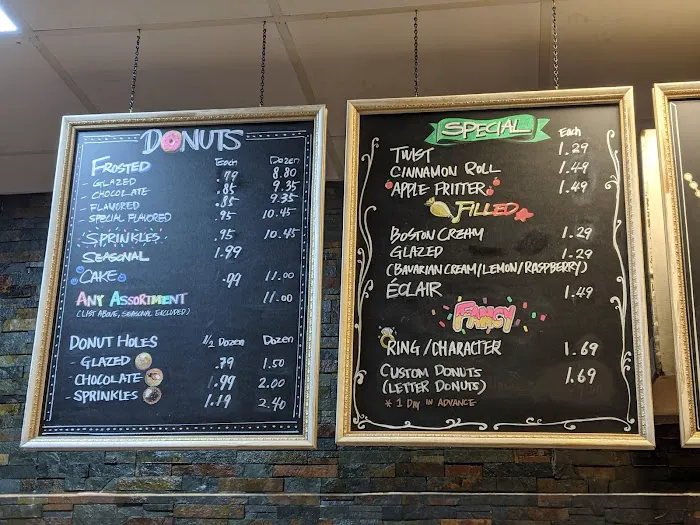 DONUTS
Each Dozen
FROSTED
- GLAZED .79 8.80
- CHOCOLATE .85 9.35
- FLAVORED .85 9.35
- SPECIAL FLAVORED .95 10.45
SPRINKLES .95 10.45
SEASONAL 1.99
CAKE .99 11.00
ANY ASSORTMENT 11.00
(LIST ABOVE, SEASONAL EXCLUDED)
DONUT HOLES 1/2 Dozen Dozen
- GLAZED .79 1.50
- CHOCOLATE 1.99 2.00
- SPRINKLES 1.19 2.40
SPECIAL
Each
TWIST 1.29
CINNAMON ROLL 1.49
APPLE FRITTER 1.49
FILLED
BOSTON CREAM 1.29
GLAZED 1.29
(BAVARIAN CREAM/LEMON/RASPBERRY)
ÉCLAIR 1.49
FANCY
RING/CHARACTER 1.69
CUSTOM DONUTS 1.69
(LETTER DONUTS)
* 1 DAY IN ADVANCE